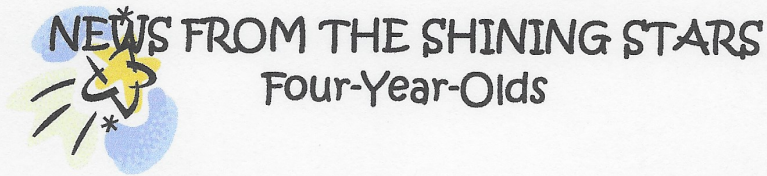 NEWS FROM THE SHINING STARS
Four-Year-Olds